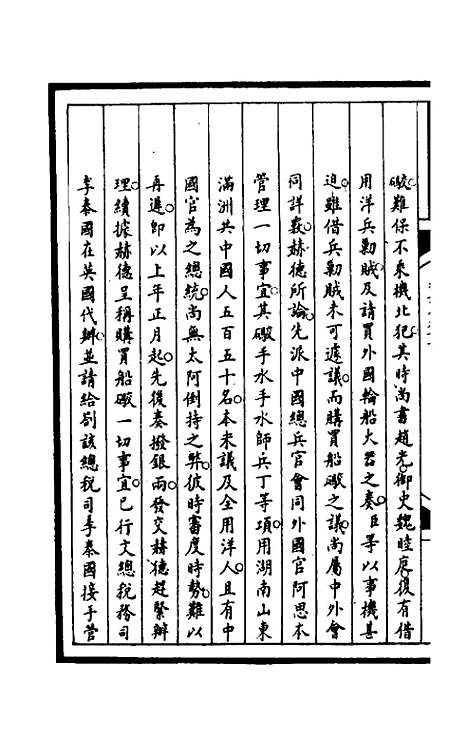 礮難保不乘機北犯其時尚書趙光御史魏睦庭復有借
用洋兵勦賊及請買外國輪船大器之奏臣等以事機甚
迫雖借兵勦賊未可遽議而購買船礮之議尚屬中外會
同詳覈赫德所論先派中國總兵官會同外國官阿思本
管理一切事宜其礮手水手水師兵丁等項用湖南山東
滿洲共中國人五百五十名本未議及全用洋人且有中
國官為之總統尚無太阿倒持之弊彼時審度時勢難以
再遲即以上年正月起先後奏撥銀兩發交赫德趕緊辦
理續據赫德呈稱購買船礮一切事宜已行文總稅務司
李泰國在英國代辦並請給劄該總稅司李泰國接手管